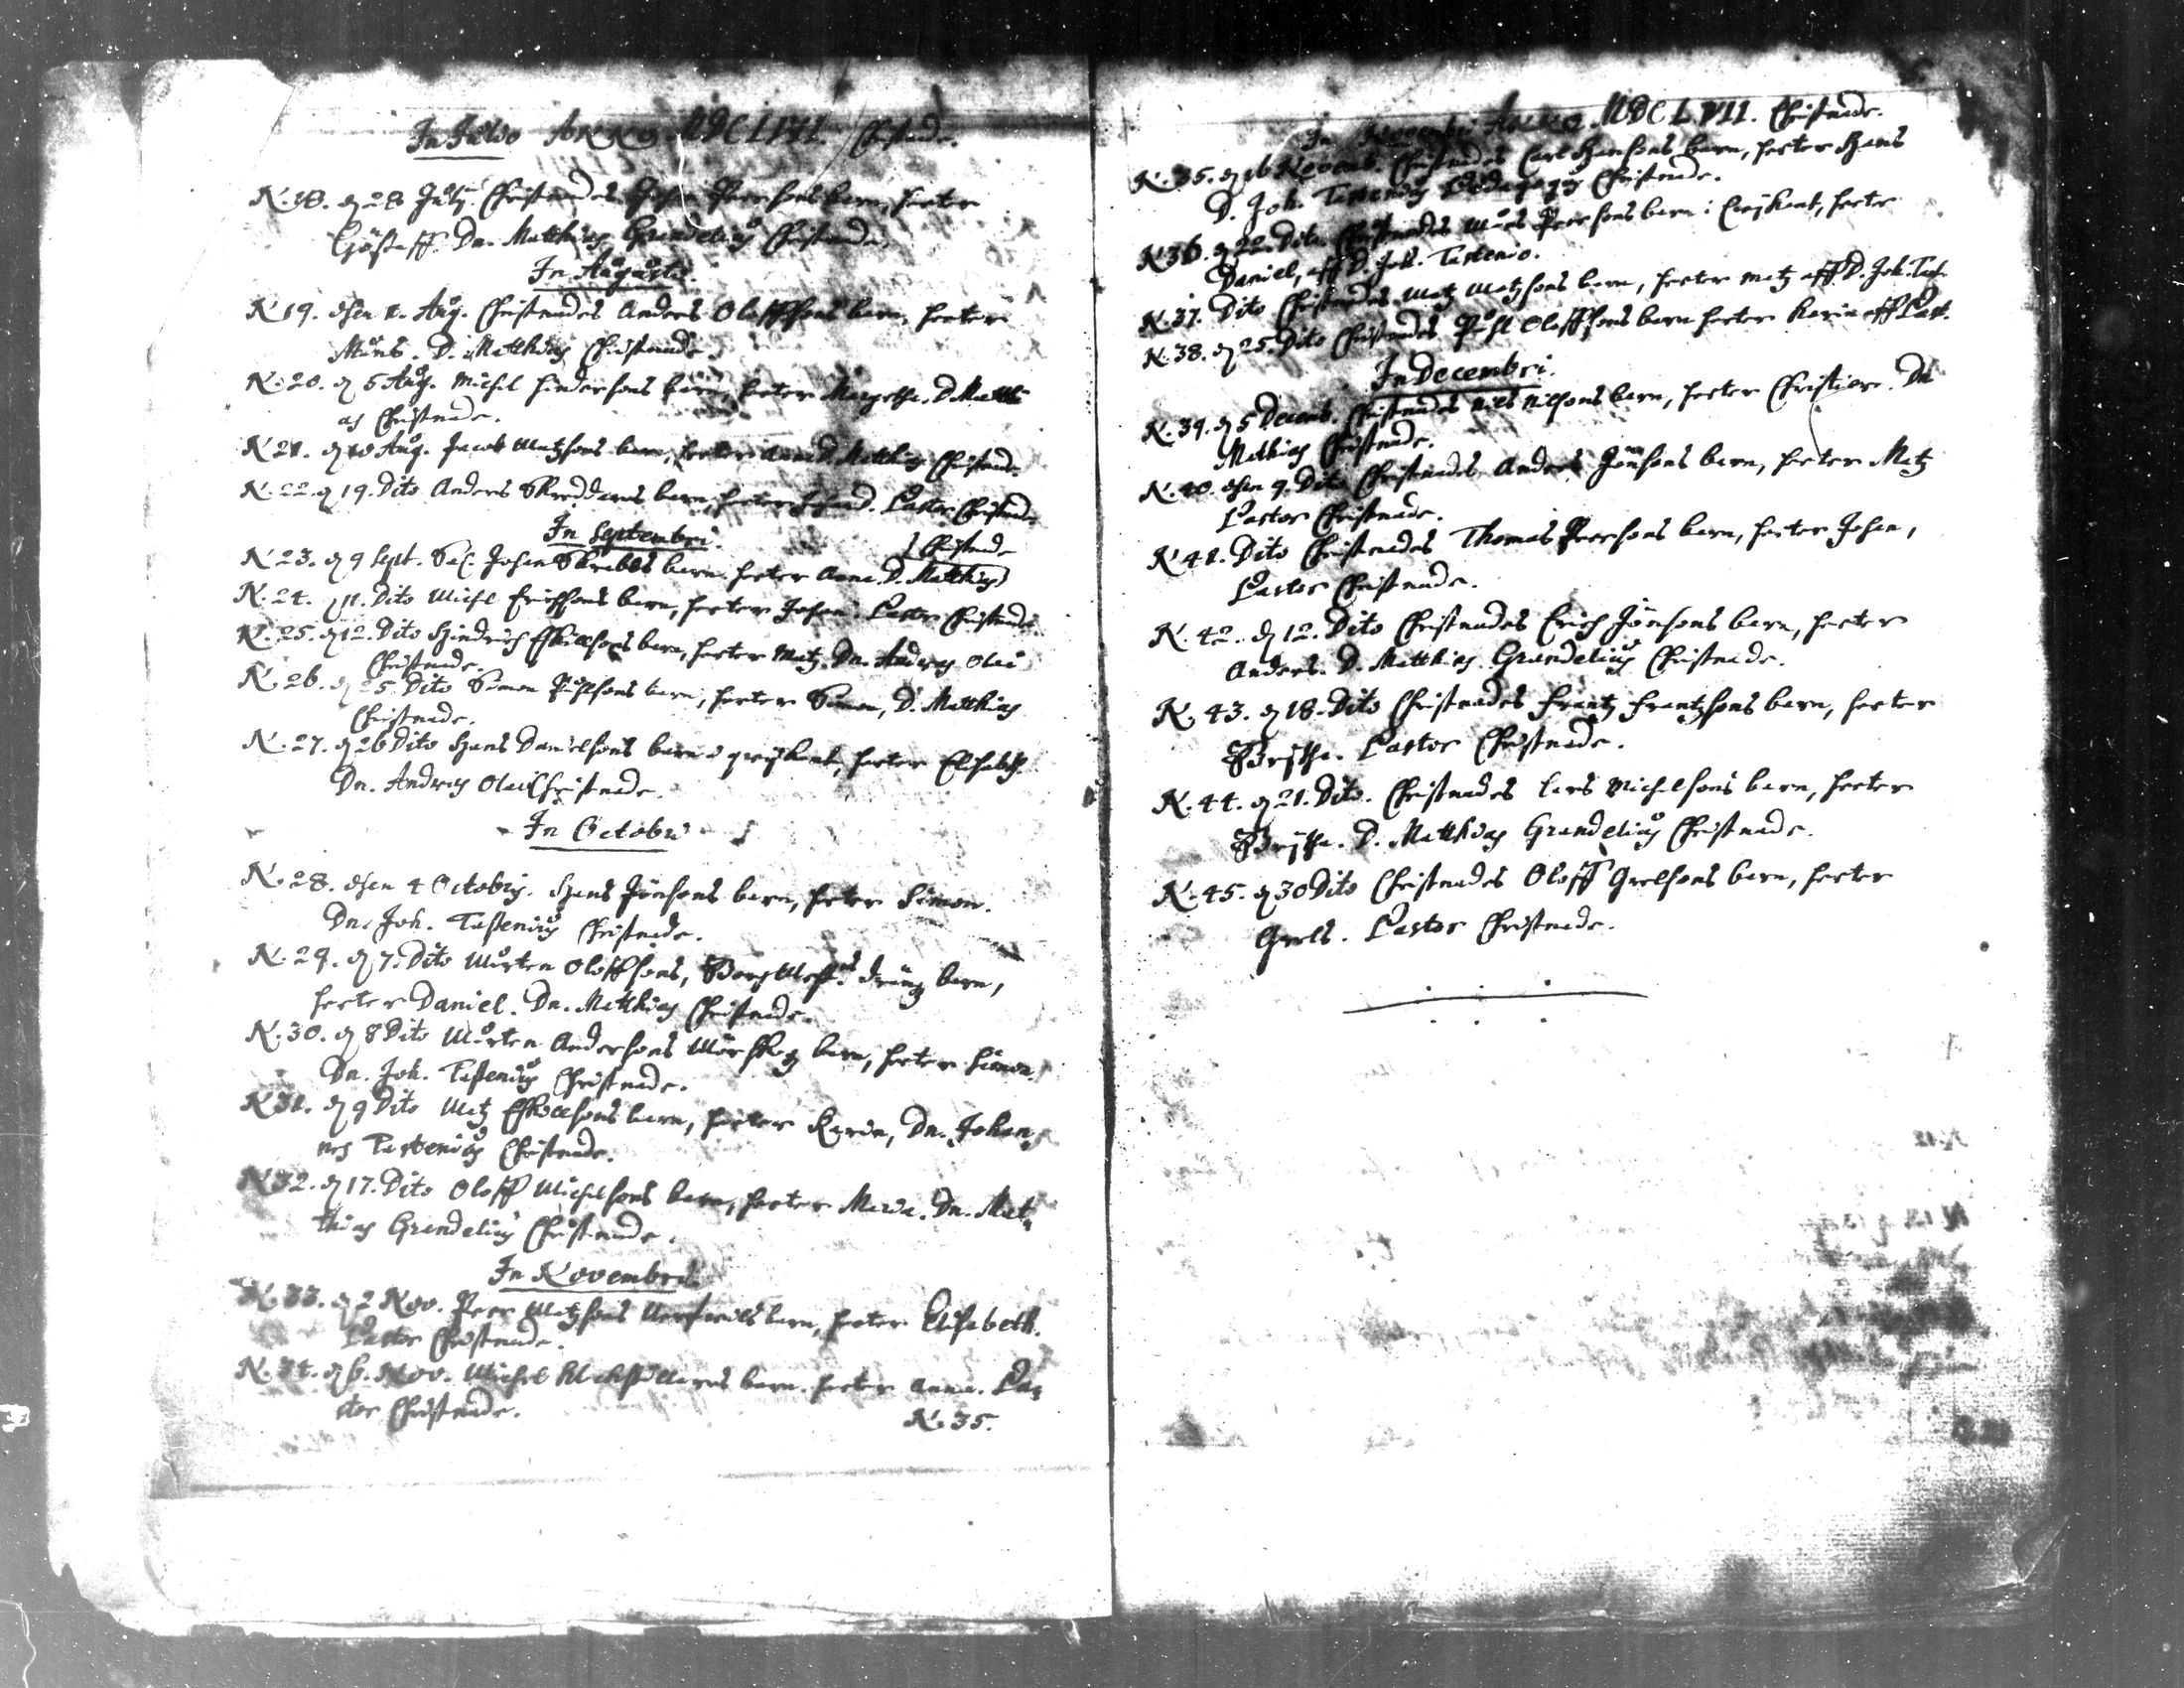 In Julio ANNO MDCLVII. Christnade.
N. 18. d 28 Julij. Christnades Johan Peersons barn, heeter
Göstaff. Dn. Matthias Grundelius Christnade.
In Augusto.
N 19. dhen 2. Aug. Christnades Anders Oloffsons barn, heeter
Måns. D. Matthias Christnade.
N. 20. d 5 Aug. Michel Hindersons barn, heeter Margetha. D Matthi
as Christnade.
N 21. d 10 Aug. Jacob Matzsons barn, heeter Anna D. Matthias Christnade.
N. 22. d 19. Dito Anders Skreddares barn, heeter Pastor Christnade
In Septembri.
N 23. d 9 Sept. Sal. Johan Skrabbs barn heeter Anna. D. Matthias
Christnade
N. 24. d 11. Dito Michel Erichsons barn, heeter Johan. Pastor Christnade
N. 25. d 12. Dito Hindrich Eskillsons barn, heeter Matz. Dn. Andreas Olai
Christnade.
N. 26. d 25. Dito Simon Påhlsons barn, heeter Simon, D. Matthias
Christnade.
N. 27. d 26 Dito Hans Danielsons barn heeter Elisabeth.
Dn. Andreas Olai Christnade.
In Octobri
N. 28. dhen 4 Octobris. Hans Jönsons barn, heeter Simon.
Dn. Joh. Tastenius Christnade.
N. 29. d 7. Dito Mårten Oloffsons, dräng barn,
heeter Daniel. Dn. Matthias Christnade.
N. 30. d 8 Dito Mårten Andersons barn, heeter Simon.
Dn. Joh. Tastenius Christnade.
N 31. d 9 Dito Matz Eskillsons barn, heeter Karin, Dn. Johan
nes Tastenius Christnade.
N 32. d 17. Dito Oloff Michelsons barn, heeter Maria. Dn. Mat
thias Grundelius Christnade.
In Novembri.
N. 33. d 2 Nov. Peer Matzsons barn, heeter Elisabeth.
Pastor Christnade.
N. 34. d 6. Nov. Michel barn. heeter Anna. Pa
stor Christnade.
N. 35.
In Novembri ANNO MDCLVII. Christnade.
N. 35. d 16 Novemb. Christnades Carl Hansons barn, heeter Hans
D. Joh. Tastenius Pædagogus Christnade.
N 36. d 22. Dito. Christnades Måns Peersons barn i heeter
Daniel, aff D. Joh. Tastenio.
N. 37. Dito Christnades Matz Matzsons barn, heeter Matz aff D. Joh. Tast.
N. 38. d 25. Dito Christnades Påhl Oloffsons barn heeter Karin aff Past.
In Decembri.
N. 39. d 5 Decemb. Christnades Nils Nilsons barn, heeter Christier. Dn
Mathias Christnade.
N. 40. dhen 9. Dito Christnades Anders Jönsons barn, heeter Matz
Pastor Christnade.
N 41. Dito Christnades Thomas Peersons barn, heeter Johan,
Pastor Christnade.
N. 42. d 12. Dito Christnades Erich Jönsons barn, heeter
Anders. D. Matthias Grundelius Christnade.
N. 43. d 18. Dito Christnades Frantz Frantzsons barn, heeter
Brijtha. Pastor Christnade.
N. 44. d 21. Dito. Christnades Lars Michelsons barn, heeter
Brijtha. D. Matthias Grundelius Christnade.
N. 45. d 30 Dito Christnades Oloff Grelsons barn, heeter
Grels. Pastor Christnade.